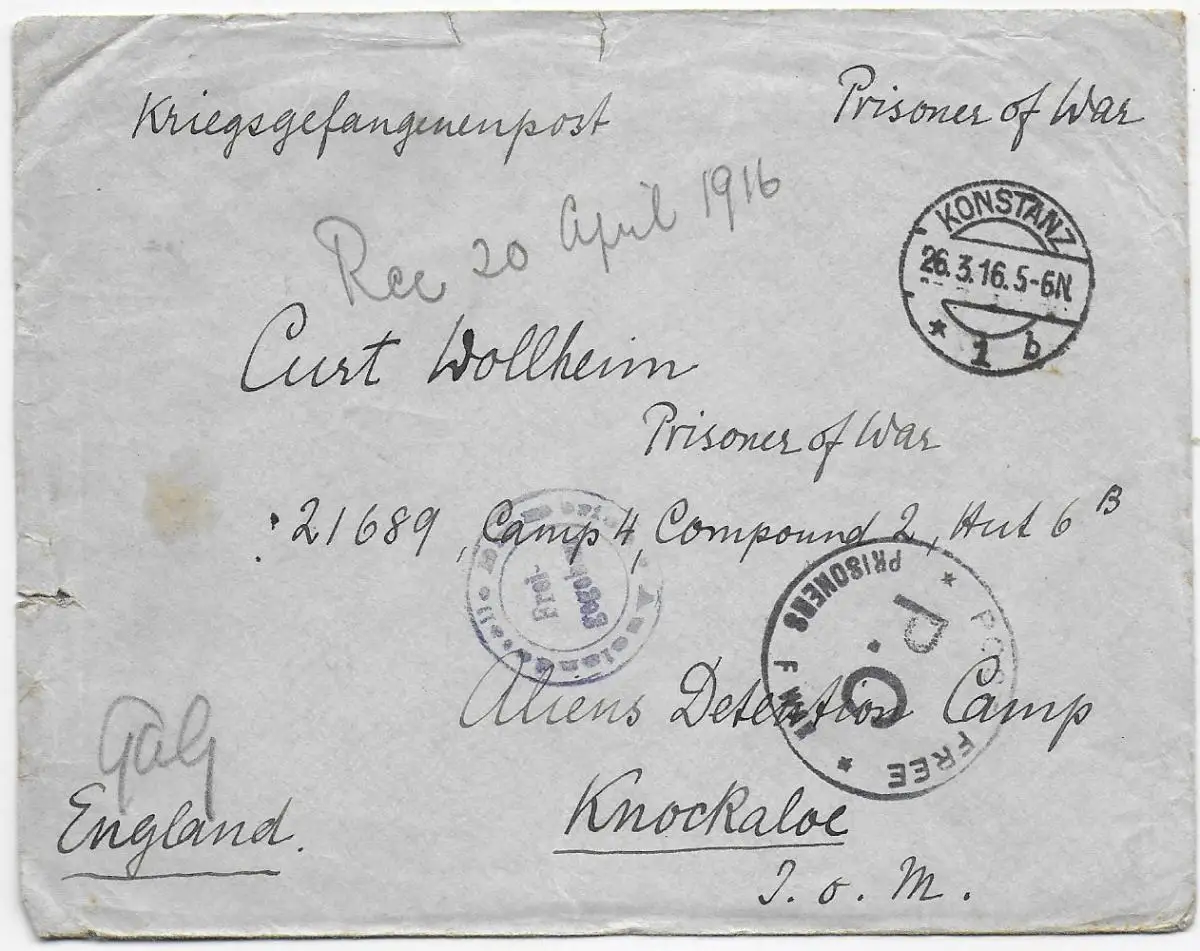 Kriegsgefangenenpost
Prisoner of War
Rec 20 April 1916
KONSTANZ
26.3.16.5-6N.
* 1 b
Curt Wollheim
Prisoner of War
21689, Camp 4, Compound 2, Hut 6 B
Frei-
POST FREE * PRISONERS OF WAR *
P.C.
Aliens Detention Camp
Knockaloe
I. o. M.
England.